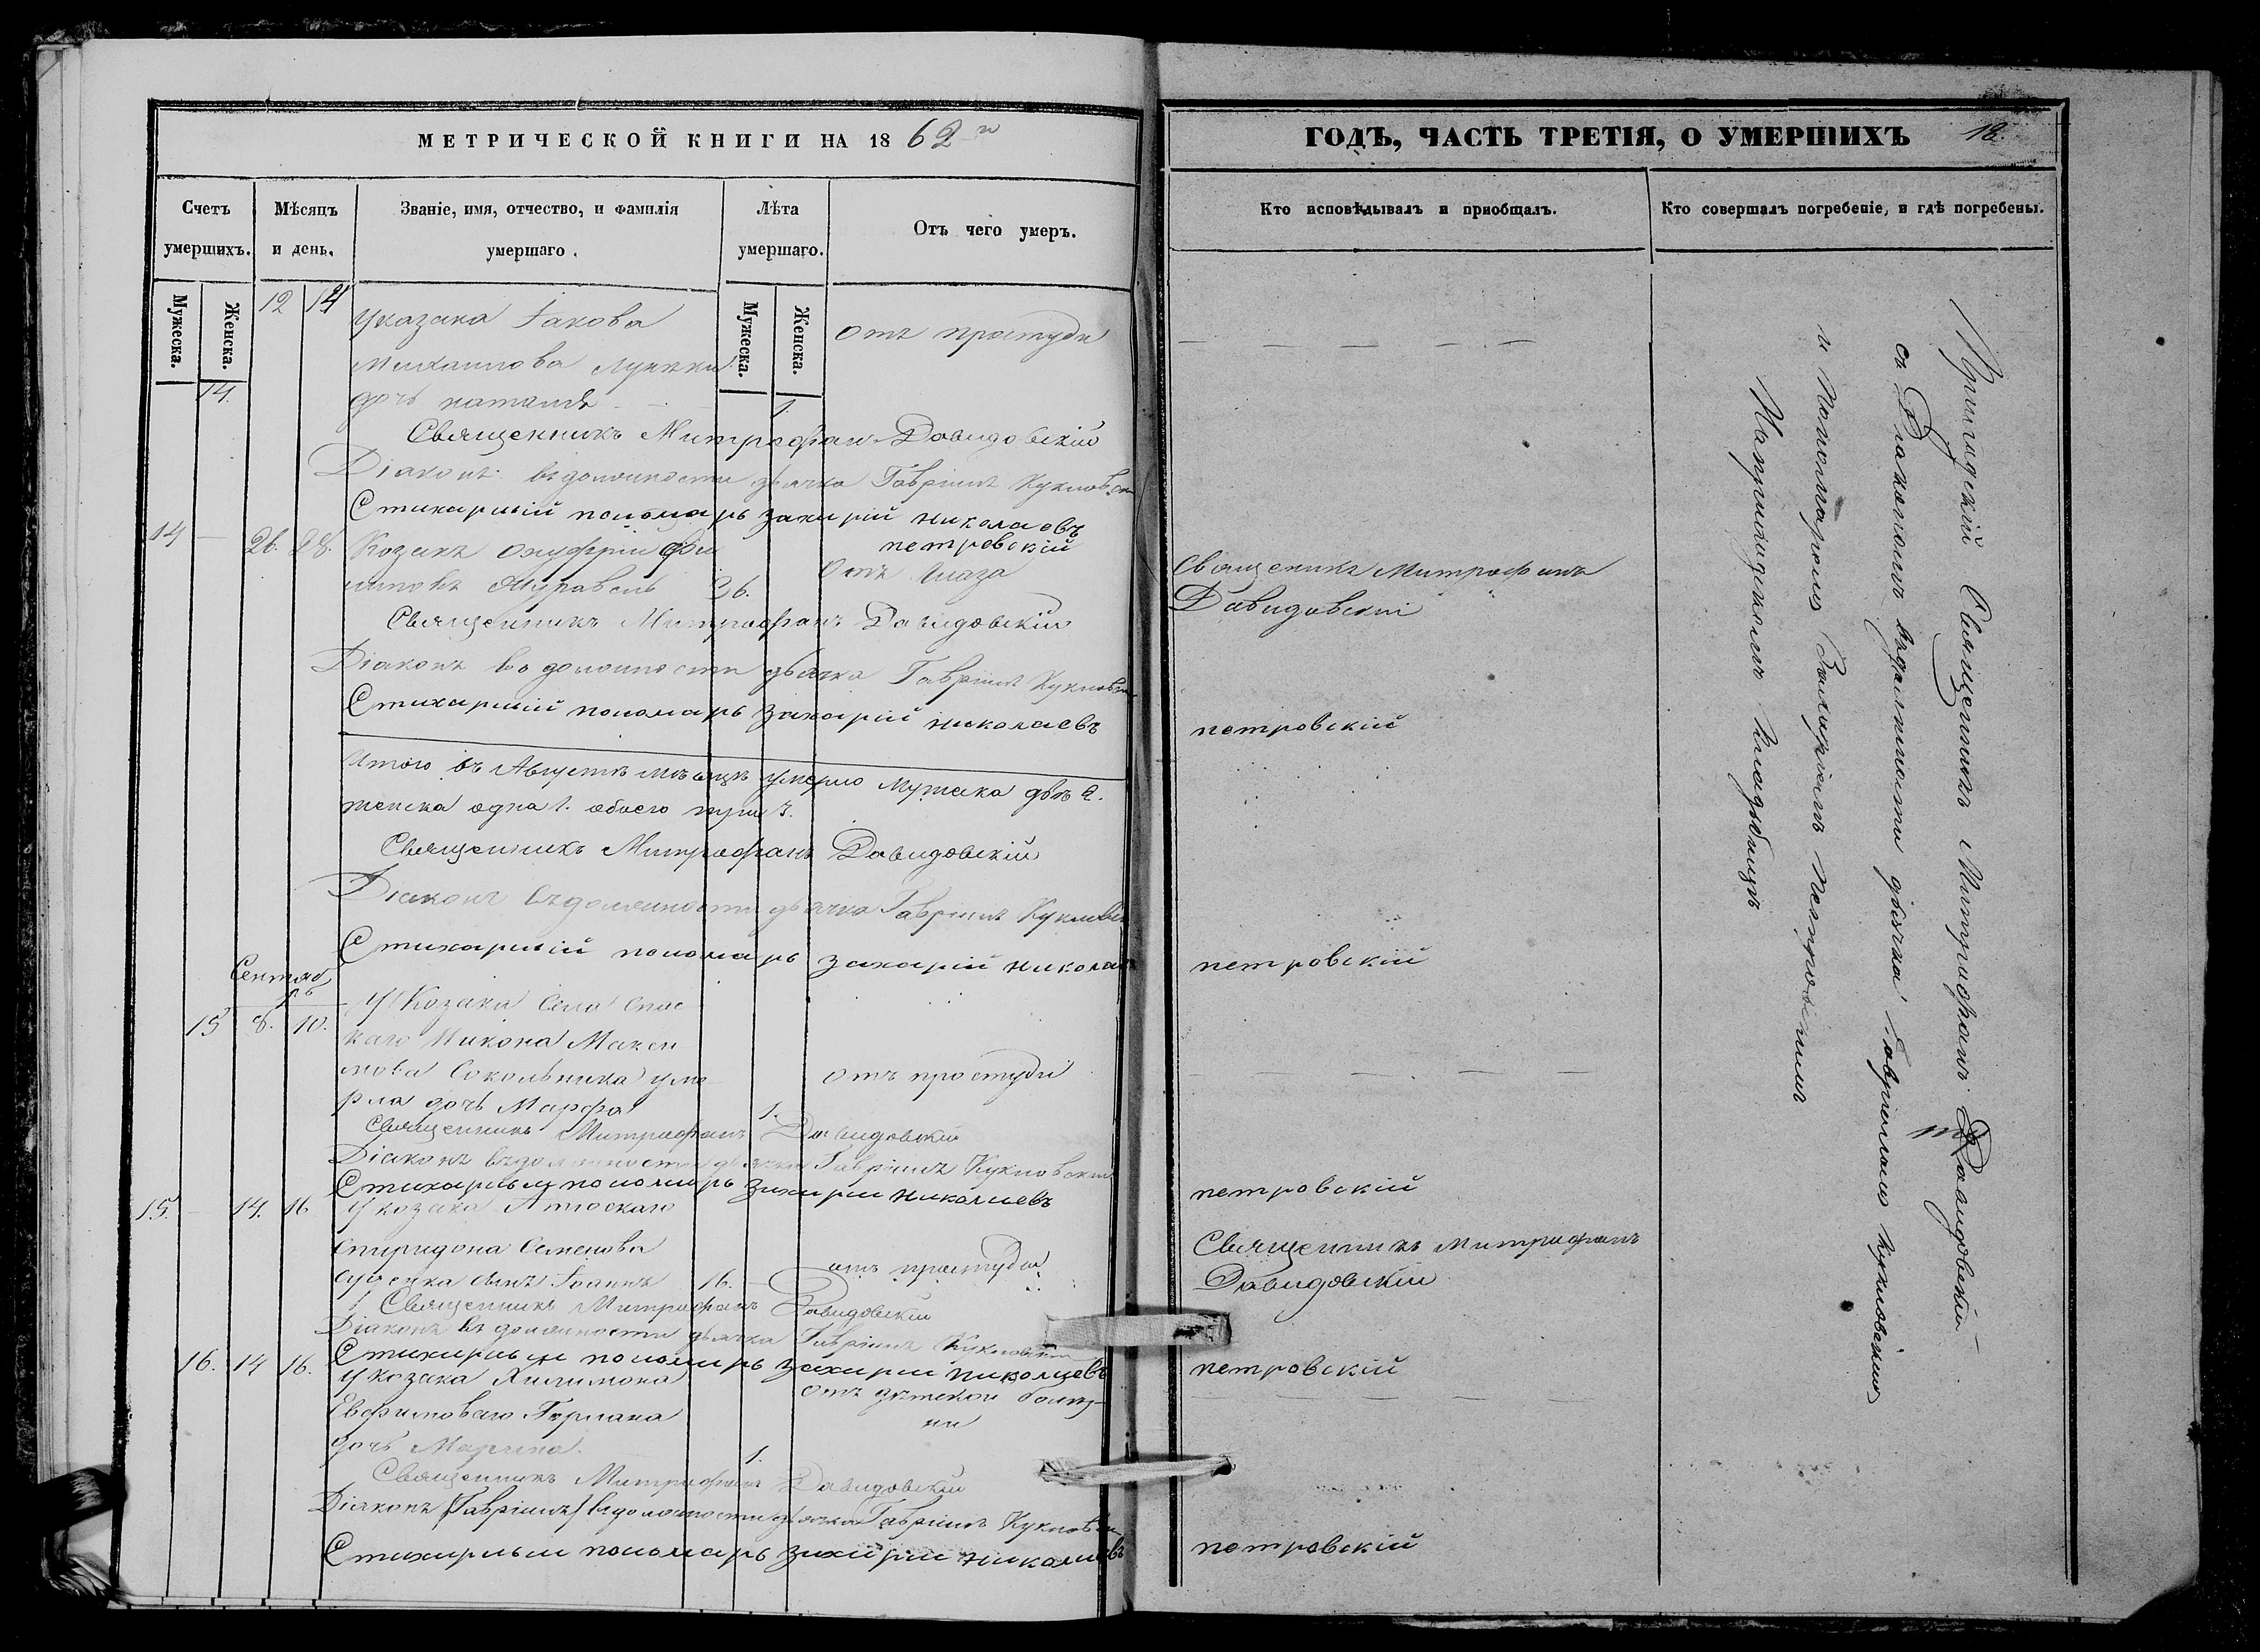 МЕТРИЧЕСКОЙ КНИГИ НА 1862
Счетъ умершихъ.
Мѣсяцъ и день.
Званіе, имя, отчество, и фамилія умершаго.
Лѣта умершаго.
Отъ чего умеръ.
Мужеска.
Женска.
Мужеска.
Женска.
14.
12 14
Указака Іакова
Михаилова
дочь наталія
1.
отъ простуди
Священникъ Митрофан Давидовскій
Діаконъ въ должности дьячка Гавріилъ
Стихарный пономарь захарій николаевъ
петровскій
14 — 26. 28.
Козакъ онуфрій Фи
липовъ Журавель 26.
Отъ
Священникъ Митрофанъ Давидовскій
Діаконъ во должности дьячка Гавріилъ
Стихарный пономарь захарій николаевъ
Итого въ Августѣ мѣсяцѣ умерло Мужеска два 2.
женска одна 1. обоего три 3.
Священникъ Митрофанъ Давидовскій
Діаконъ въ должности дьячка Гавріилъ
Стихарный пономарь захарій николаевъ
Сентяб
рь
15 8. 10.
У Козака Села Спас
каго Никона Макси
мова Сокольника уме
рла дочь Марфа 1.
отъ простуди
Священникъ Митрофанъ Давидовскій
Діаконъ въ должности дьячка Гавріилъ
Стихарный пономарь захарий николаевъ
15. — 14. 16
У козака
Спиридона Семенова
сынъ Іоаннъ 16. —
отъ простуди
Священникъ Митрофанъ Давидовскій
Діаконъ въ должности дьячка Гавріилъ
Стихарный пономарь захарий николаевъ
16. 14 16.
У козака Филимона
дочь Марина. 1.
отъ дѣтской болѣз-
ни
Священникъ Митрофанъ Давидовскій
Діаконъ Гавріилъ въ должности дьячка Гавріилъ
Стихарный пономарь захарий николаевъ
ГОДЪ, ЧАСТЬ ТРЕТІЯ, О УМЕРШИХЪ 18.
Кто исповѣдывалъ и пріобщалъ.
Кто совершалъ погребеніе, и гдѣ погребены.
Священикъ Митрофанъ
Давидовскій
петровскій
петровскій
петровскій
Священникъ Митрофанъ
Давидовскій
петровскій
петровскій
Приходскій Священникъ Митрофанъ Давидовскій
съ Діакономъ въ должности дьячка Гавріиломъ Кукловскимъ
и Пономаремъ Захаріемъ Петровскимъ
На приходскомъ Кладьбищѣ